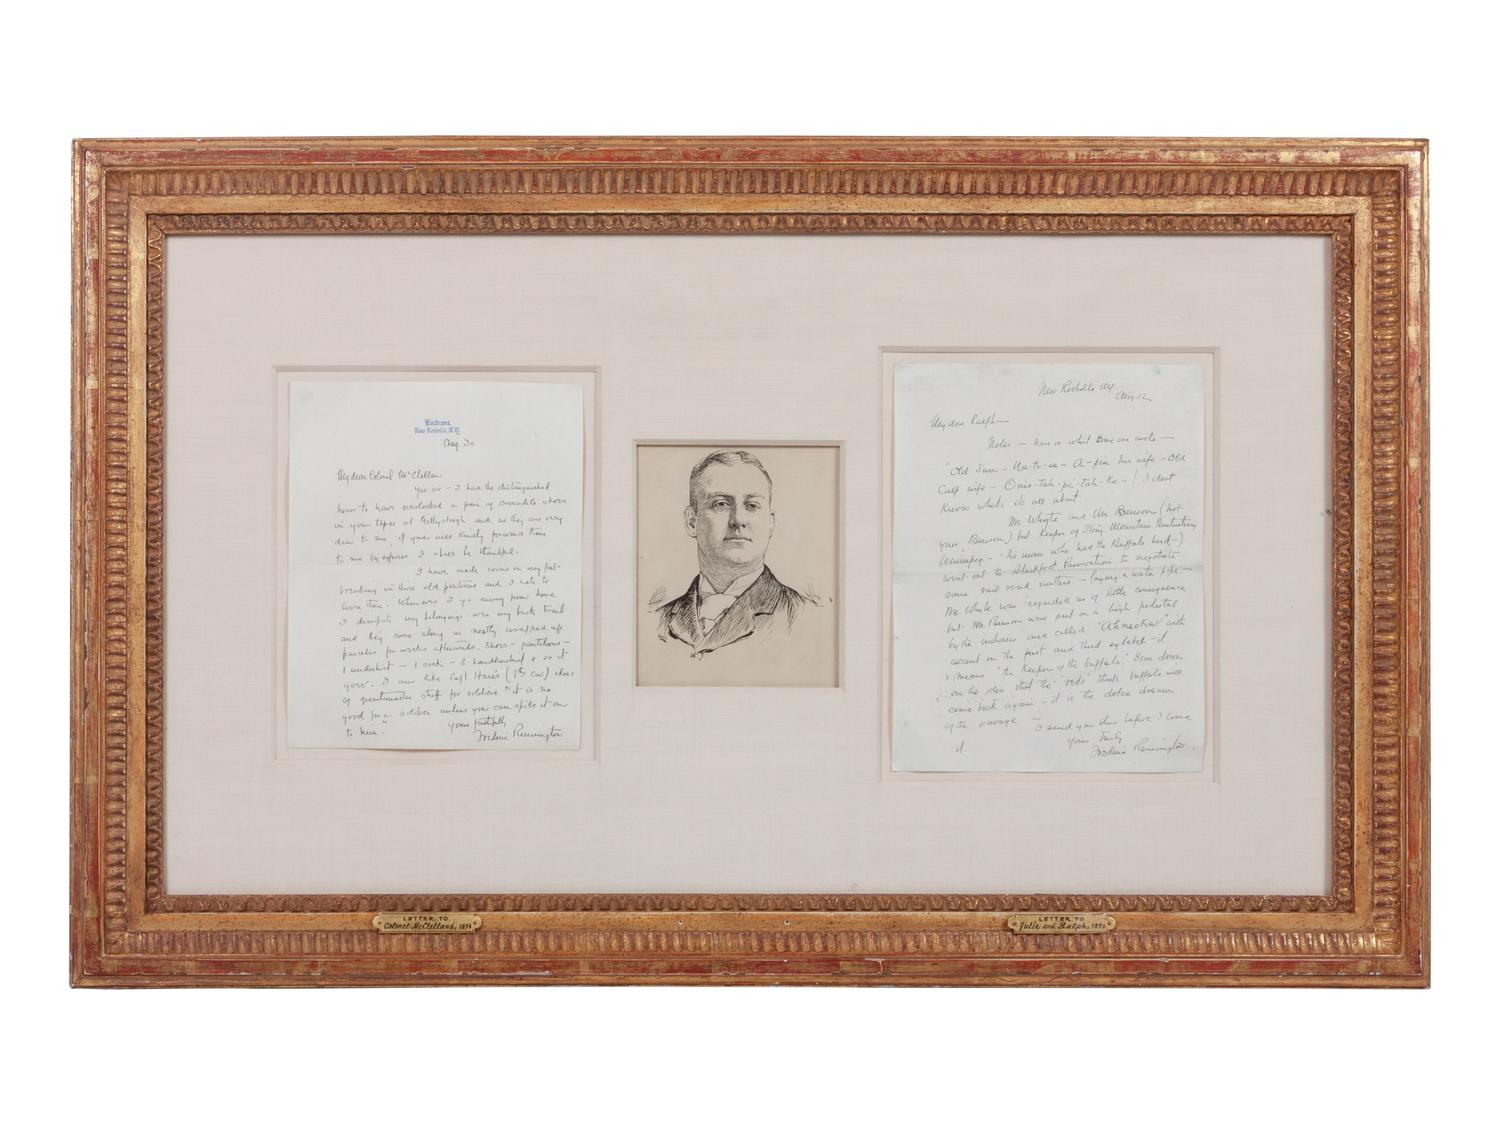 Endion.
New Rochelle, N.Y.
Aug. 30
My dear Colonel McClellan
Yes sir - I had the distinguished
honor to have overlooked a pair of crocodile shoes
in your tepee at Gettysburgh and as they are very
dear to me, if you will kindly forward them
to me by express I shall be thankful.
I have made corns on my feet
breaking in those old positions and I hate to
lose them. Whenever I go away from home
I dissipate my belongings over my back trail
and they come along in neatly wrapped up
parcels for weeks afterwards. Shoes - pantaloons -
1 undershirt - 1 sock - 3 handkerchief & so it
goes. I am like Capt Hare's (7th Cav) ideas
of quartermaster stuff for soldiers "it is no
good for a soldier unless you can spike it on
to him."
Yours faithfully
Frederic Remington
New Rochelle NY
Aug 12
My dear Ralph -
Notes - here is what some one wrote -
"Old Sun - Na-to-se - A-pin his wife - Old
Calf wife - Onis-tah-pi-tah-ka - ! I dont
know what its all about.
Mr. Whyte and Mr Benson (not
your Benson) but Keeper of Stony Mountain Penitentiary
Winnipeg - "the man who has the Buffalo herd -)
went out to Blackfoot Reservation to negotiate
some rail road matters - laying a water pipe -
Mr. Whyte was regarded as of little consequence
but Mr Benson was put on a high pedestal
by the indians and called "Ahnectas" with
accent on the first and third syllable - it
means "the Keeper of the buffalo."
on the idea that the "reds" think buffalo will
come back again - it is the dolce dream
of the savage - I send you this before I lose
it
Yours Truly
Frederic Remington.
LETTER TO
Colonel McClelland, 1894
LETTER TO
Julie and Ralph,